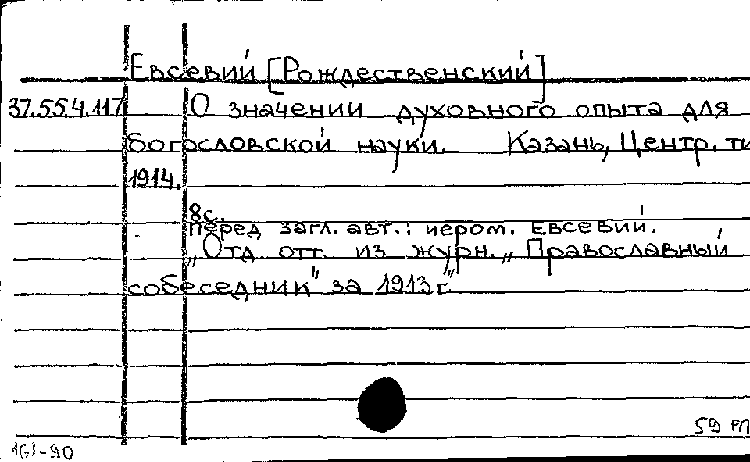 Евсевий [Рождественский]
37.55.4.117 О значении духовного опыта для
богословской науки. Казань, Центр. ти
1914.
8с.
Перед загл. авт.: иером. Евсевий.
„Отд. отт. из журн. „Православный
собеседник" за 1913 г."
59 РП
161-90